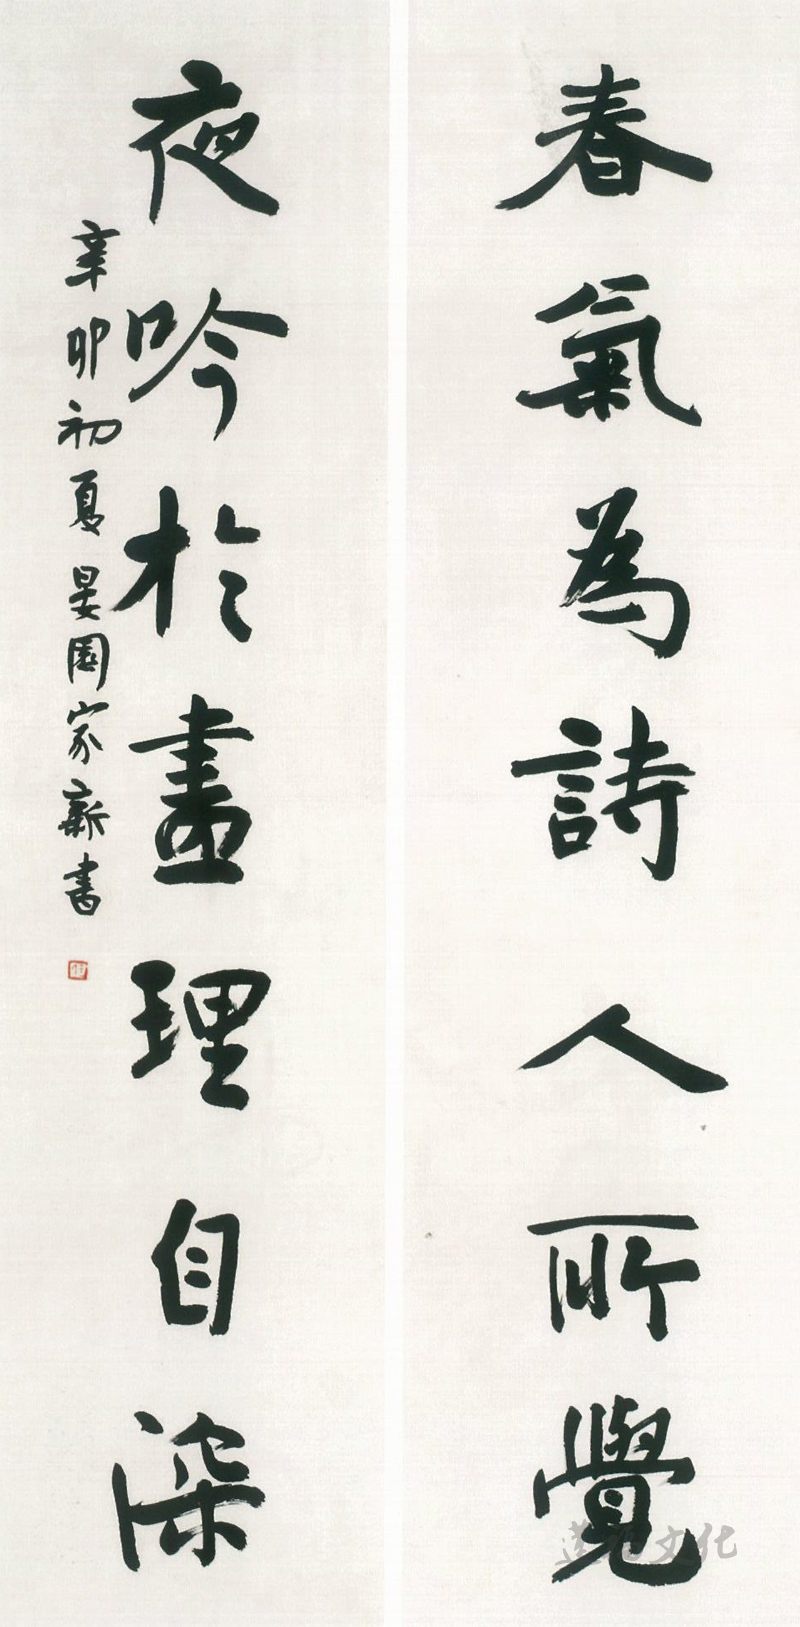 春氣為詩人所覺
夜吟於畫理自深
辛卯初夏晏園家新書